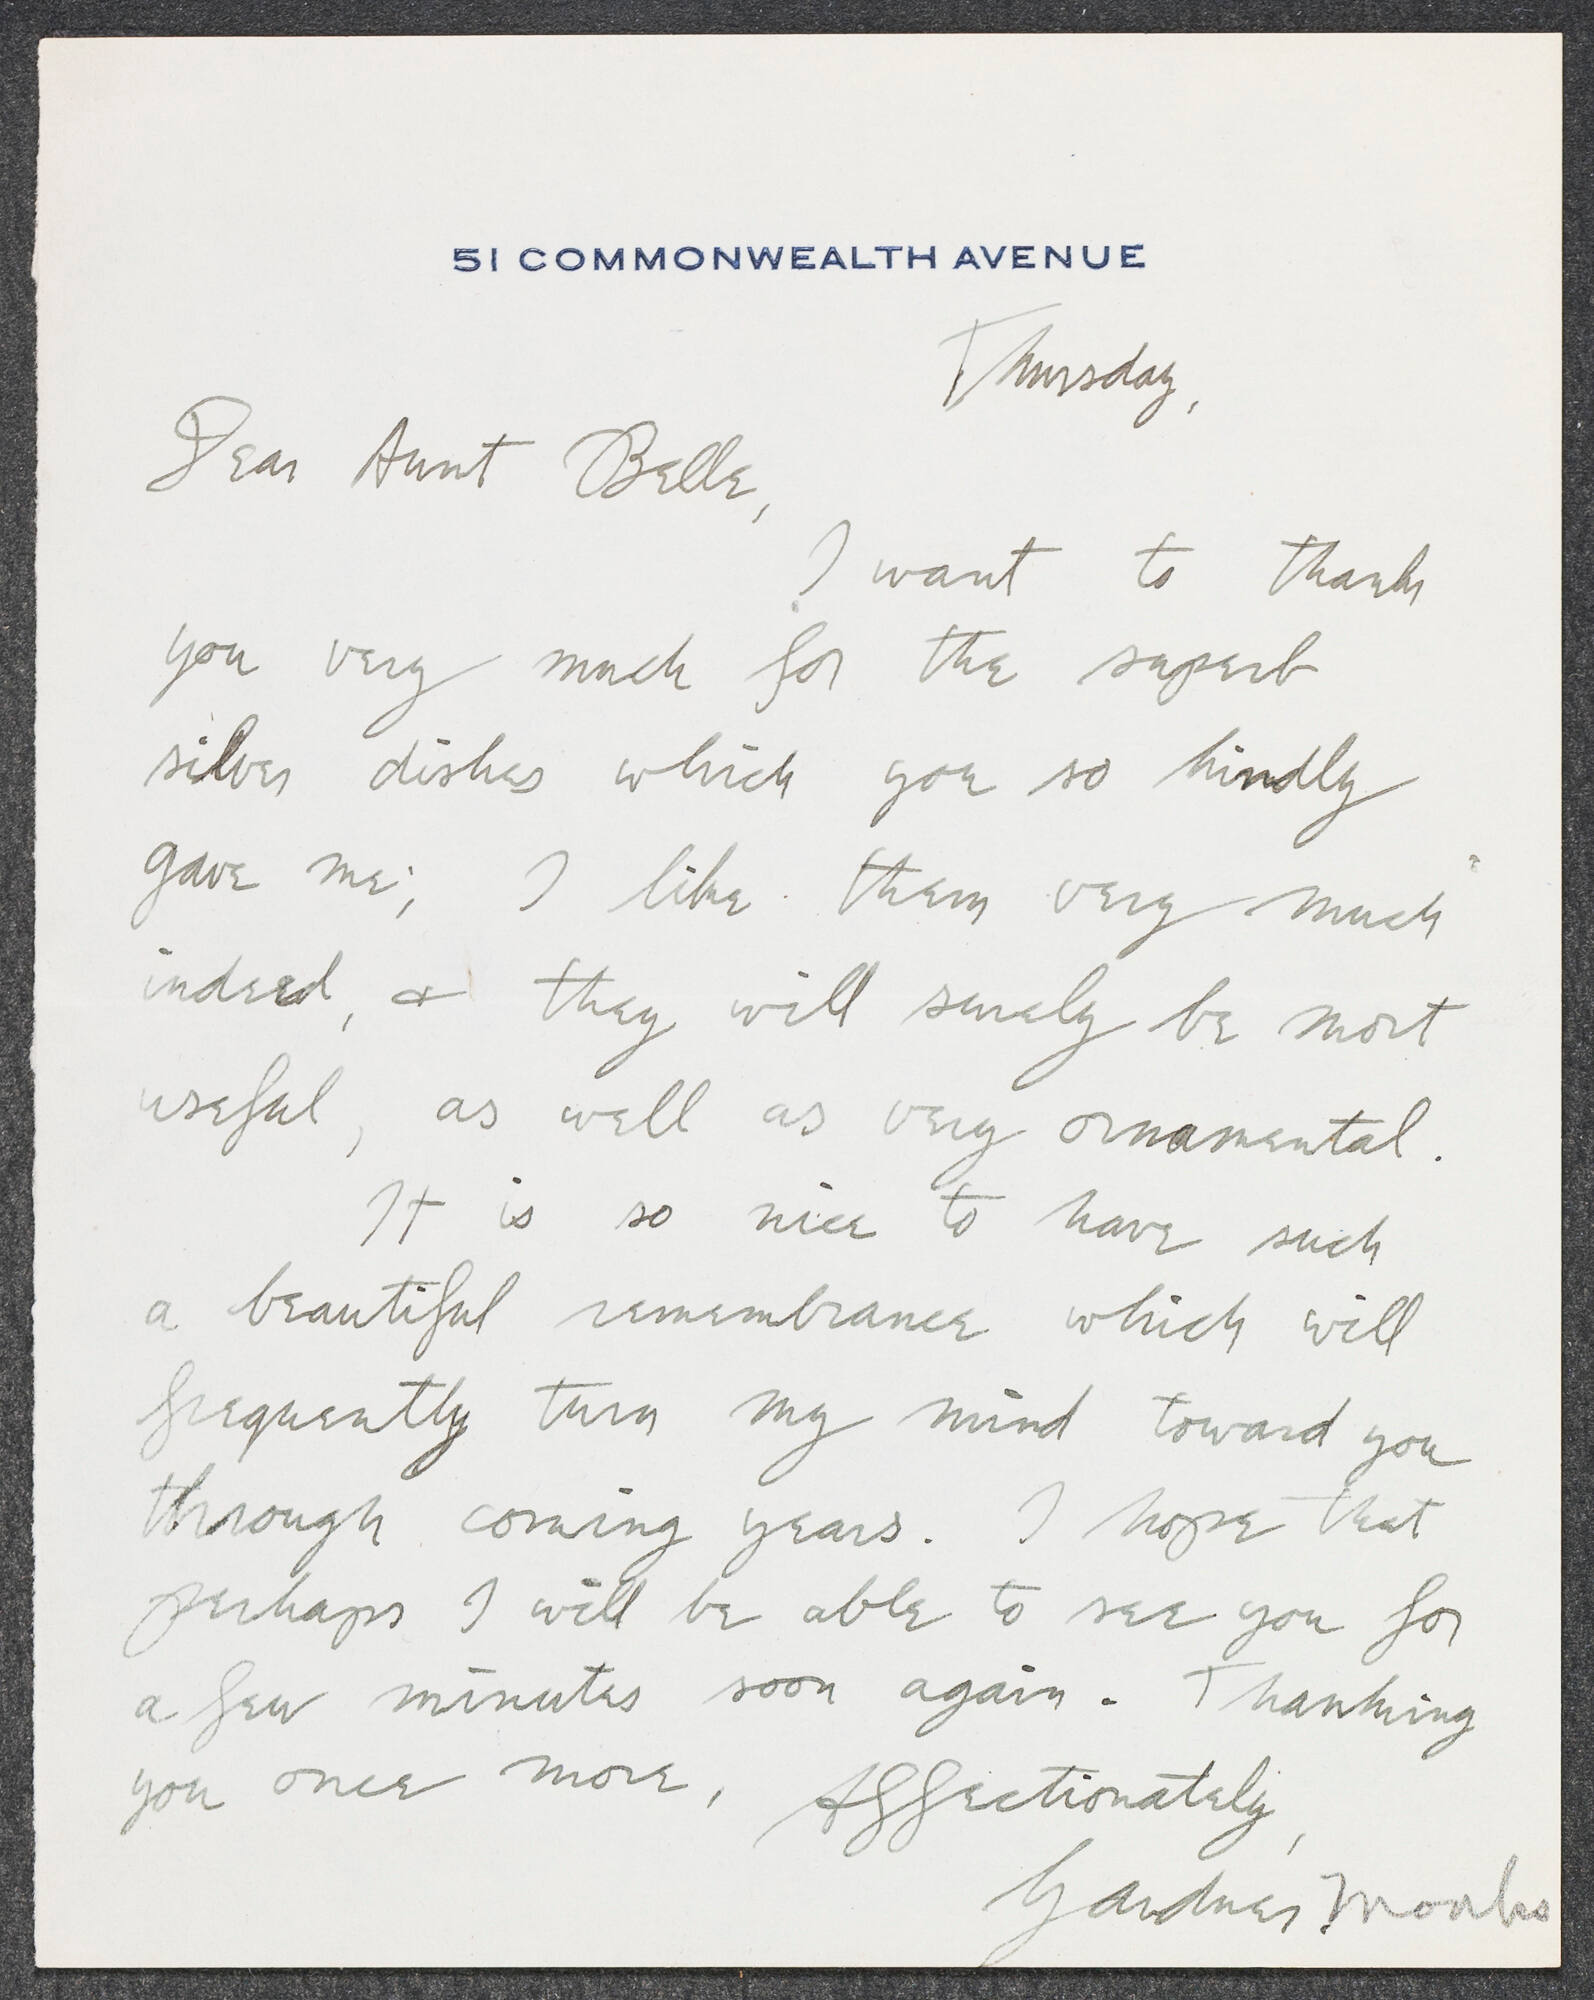 51 COMMONWEALTH AVENUE
Thursday,
Dear Aunt Belle,
I want to thank
you very much for the superb
silver dishes which you so kindly
gave me; I like them very much
indeed, & they will surely be most
useful, as well as very ornamental.
It is so nice to have such
a beautiful remembrance which will
frequently turn my mind toward you
through coming years. I hope that
perhaps I will be able to see you for
a few minutes soon again. Thanking
you once more, Affectionately,
Gardner Monks